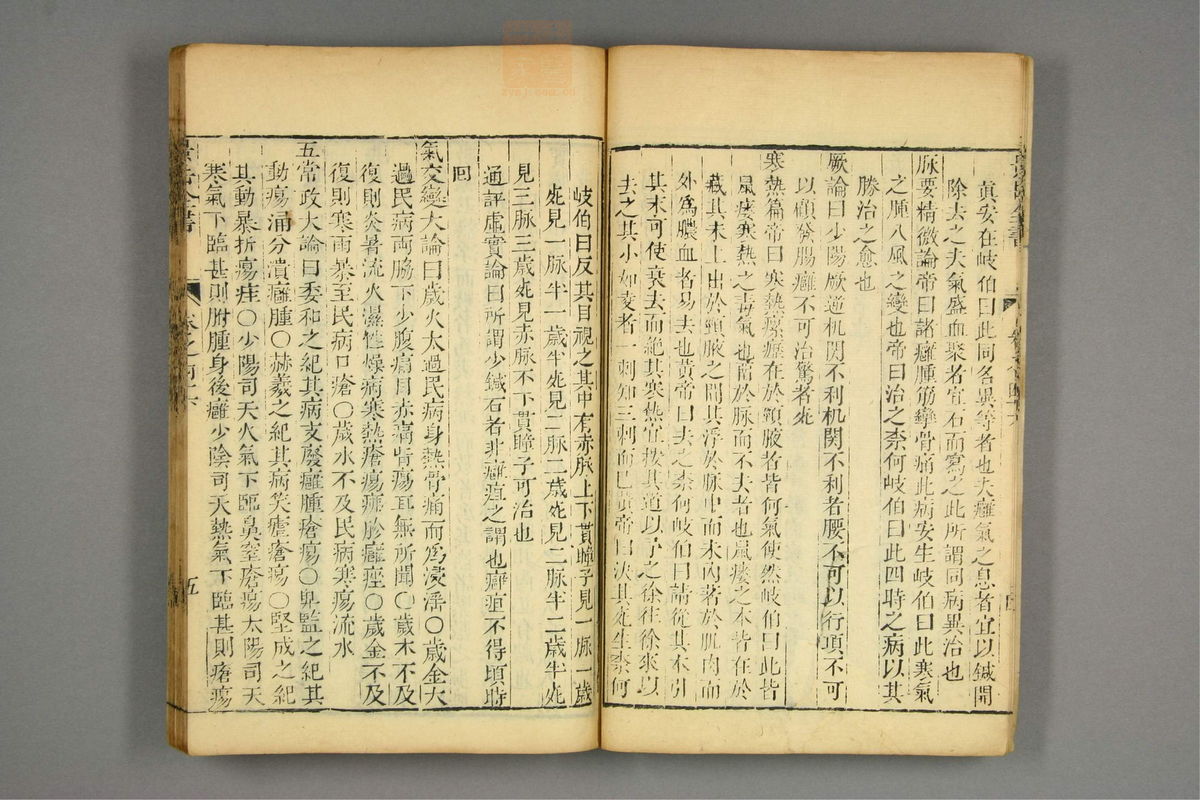 真安在岐伯曰此同名異等者也夫癰氣之息者宜以鍼開
除去之夫氣盛血聚者宜石而瀉之此所謂同病異治也
脉要精微論帝曰諸癰腫筋攣骨痛此病安生岐伯曰此寒氣
之腫八風之變也帝曰治之柰何岐伯曰此四時之病以其
勝治之愈也
厥論曰少陽厥逆机関不利机関不利者腰不可以行項不可
以顧發腸癰不可治驚者死
寒熱篇帝曰寒熱瘰癧在於頸腋者皆何氣使然岐伯曰此皆
鼠瘻寒熱之毒氣也畱於脉而不去者也鼠瘻之本皆在於
藏其末上出於頸腋之間其浮於脉中而未內著於肌肉而
外爲膿血者易去也黃帝曰去之柰何岐伯曰請從其本引
其末可使衰去而絶其寒熱宜按其道以予之徐徃徐來以
去之其小如麥者一刺知三刺而巳黃帝曰決其死生柰何
岐伯曰反其目視之其中有赤脉上下貫瞳子見一脉一歲
死見一脉半一歲半死見二脉二歲死見二脉半二歲半死
見三脉三歲死見赤脉不下貫瞳子可治也
通評虛實論曰所謂少鍼石者非癰疽之謂也癰疽不得頃時
囘
氣交變大論曰歲火太過民病身熱骨痛而爲浸淫〇歲金太
過民病両脇下少腹痛目赤痛眥瘍耳無所聞〇歲木不及
復則炎暑流火濕性燥病寒熱瘡瘍疿胗癰痤〇歲金不及
復則寒雨暴至民病口瘡〇歲水不及民病寒瘍流水
五常政大論曰委和之紀其病支廢癰腫瘡瘍〇卑監之紀其
動瘍涌分潰癰腫〇赫羲之紀其病笑瘧瘡瘍〇堅成之紀
其動暴折瘍疰〇少陽司天火氣下臨鼻窒瘡瘍太陽司天
寒氣下臨甚則胕腫身後癰少陰司天熱氣下臨甚則瘡瘍
五